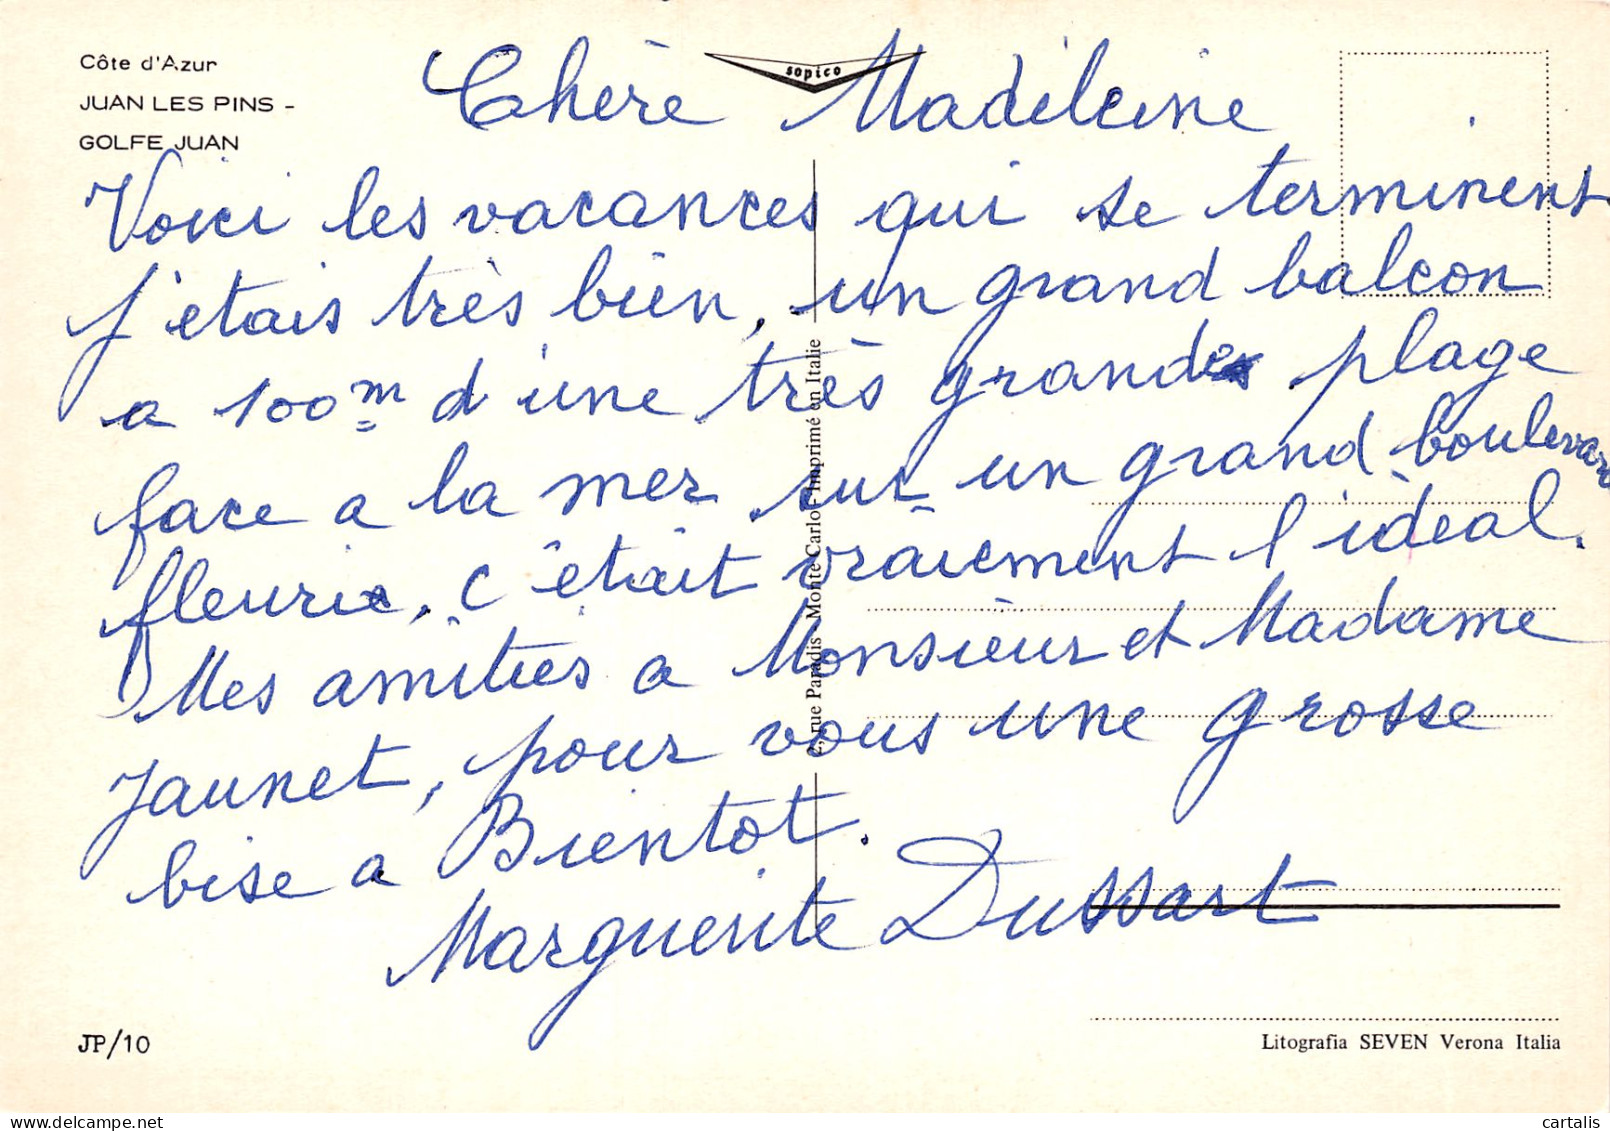 Côte d'Azur
JUAN LES PINS -
GOLFE JUAN
sopico
Chère Madeleine
Voici les vacances qui se terminent
j'etais très bien, un grand balcon
a 100m d'une très grande plage
face a la mer sur un grand boulevard
fleurie, c'était vraiment l'idéal.
Mes amities a Monsieur et Madame
Jaunet, pour vous une grosse
bise a Bientot.
Marguerite Dussart
2, rue Paradis - Monte Carlo - Imprimé en Italie
JP/10
Litografia SEVEN Verona Italia
cartalis